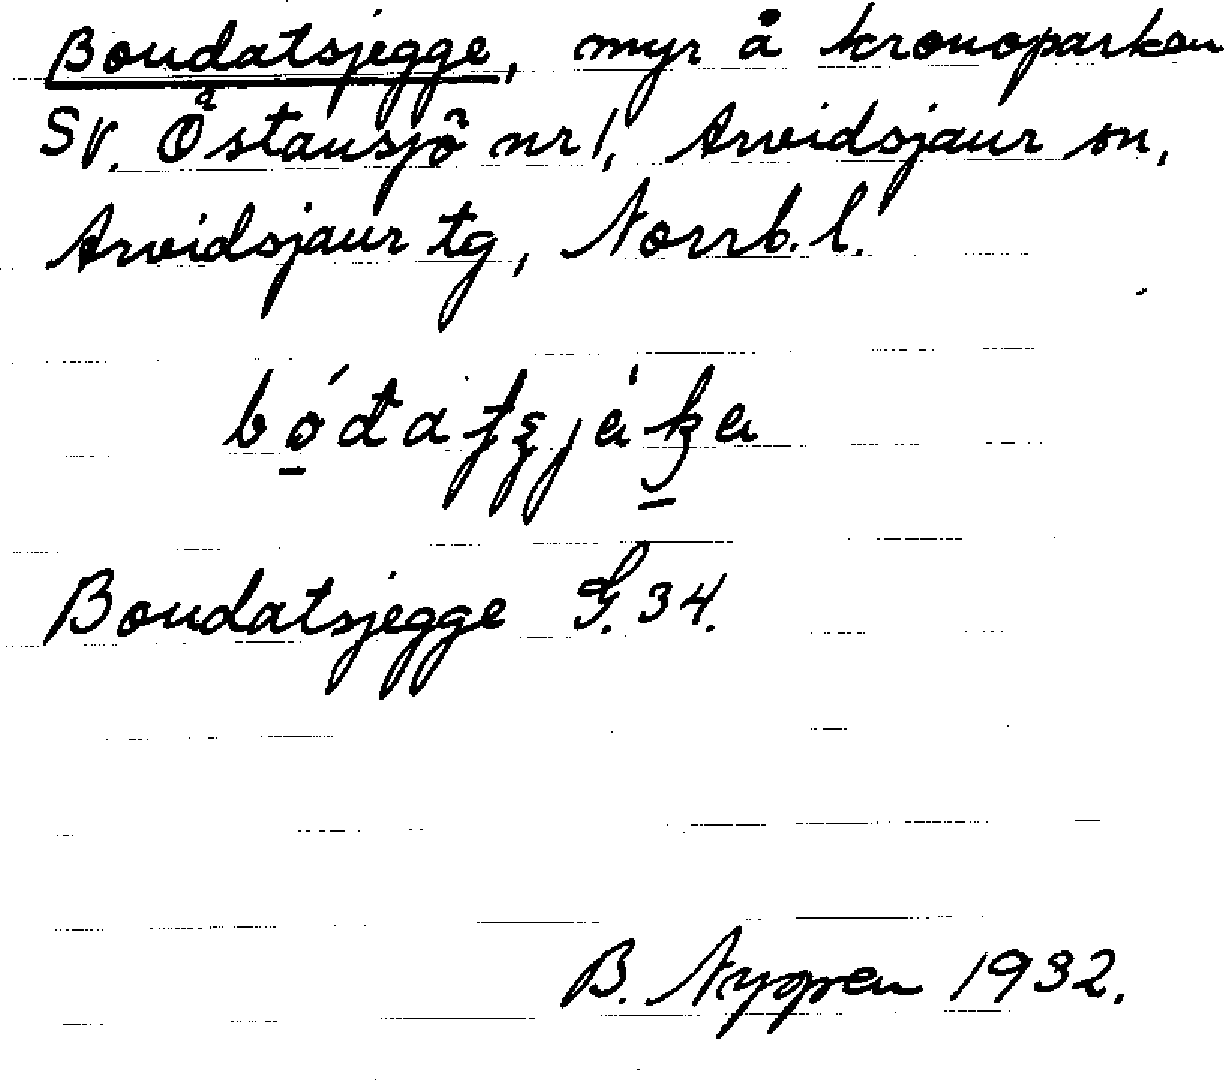 Boudatsjegge, myr å kronoparken
SV. Östansjö nr 1, Arvidsjaur sn,
Arvidsjaur tg, Norrb. l.
Boudatsjegge G. 34.
B. Nyppen 1932.